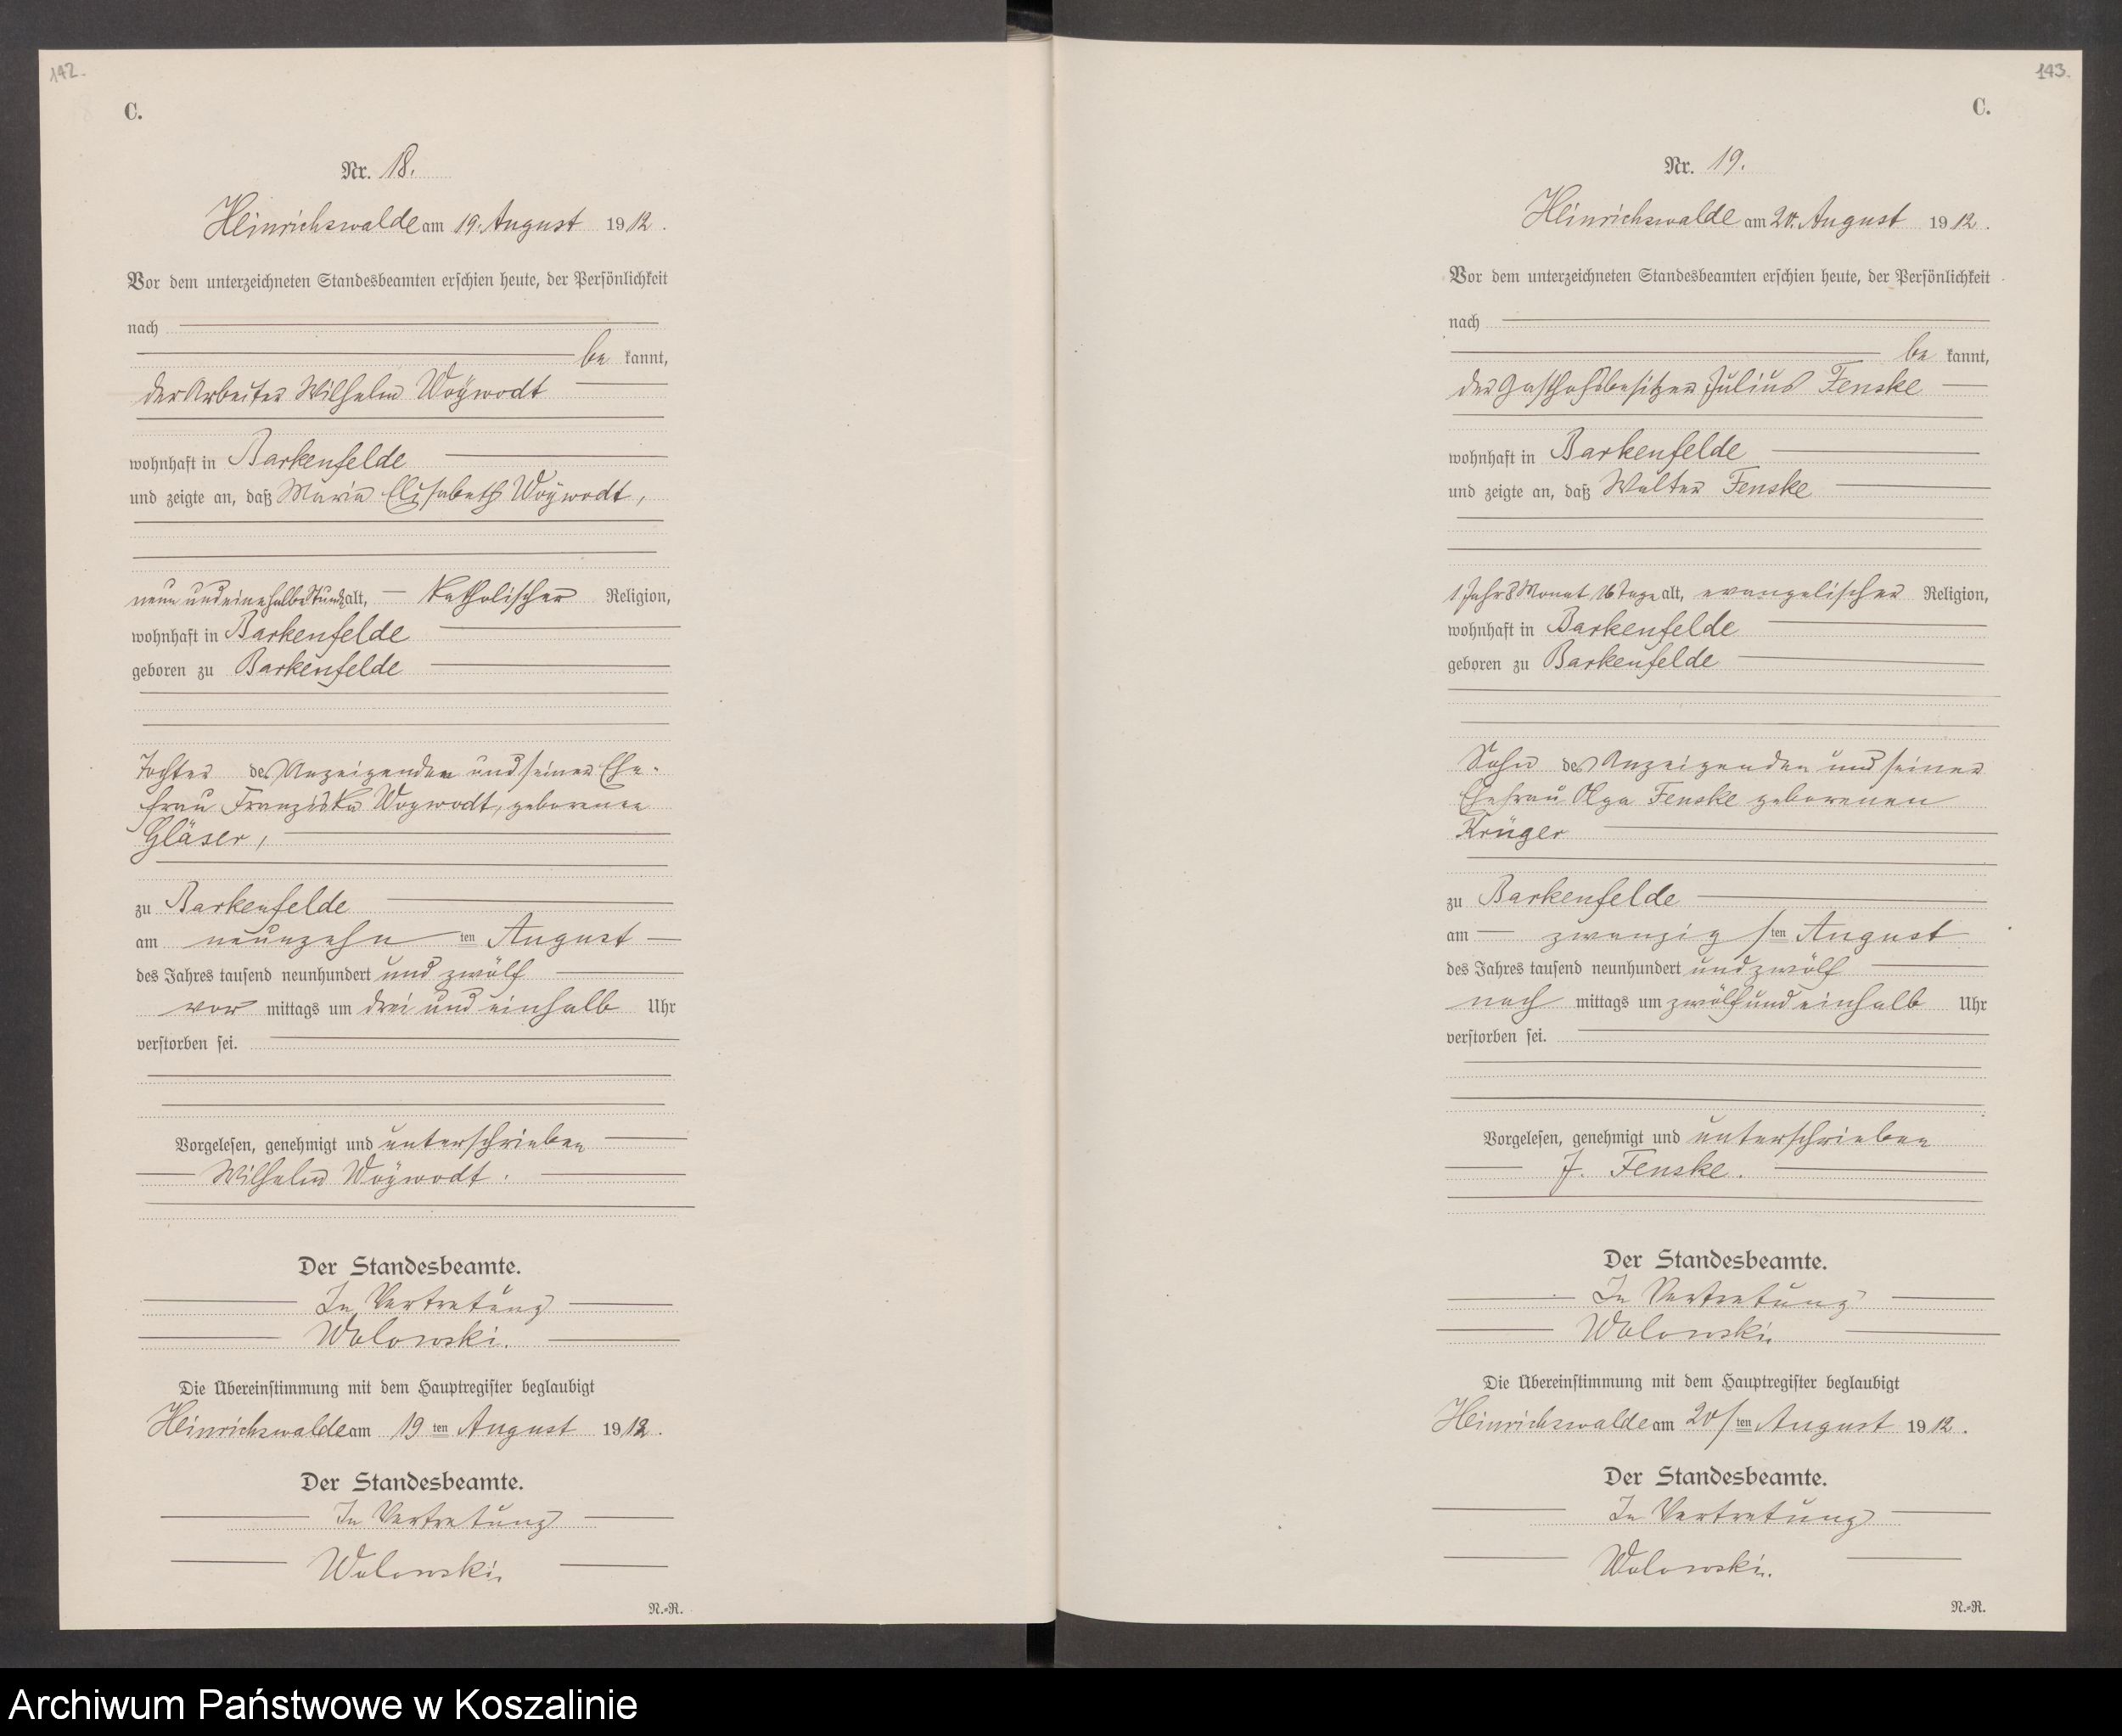 142.
C.
Nr. 18.
Heinrichswalde am 19. August 1912.
Vor dem unterzeichneten Standesbeamten erschien heute, der Persönlichkeit
nach
be kannt,
der Arbeiter Wilhelm Woÿwodt
wohnhaft in Barkenfelde
und zeigte an, daß Maria Elisabeth Woÿwodt,
neun und eine halbe Stunde alt, katholischer Religion,
wohnhaft in Barkenfelde
geboren zu Barkenfelde
Tochter des Anzeigenden und seiner Ehe-
frau Franziska Woywodt, geborenen
Gläser,
zu Barkenfelde
am neunzehn ten August
des Jahres tausend neunhundert und zwölf
vor mittags um drei und einhalb Uhr
verstorben sei.
Vorgelesen, genehmigt und unterschrieben
Wilhelm Woÿwodt.
Der Standesbeamte.
In Vertretung
Wolowski.
Die Übereinstimmung mit dem Hauptregister beglaubigt
Heinrichswalde am 19 ten August 1912.
Der Standesbeamte.
In Vertretung
Wolowski.
N.-R.
143.
C.
Nr. 19.
Heinrichswalde am 20. August 1912.
Vor dem unterzeichneten Standesbeamten erschien heute, der Persönlichkeit
nach
be kannt,
der Gasthofsbesitzer Julius Fenske
wohnhaft in Barkenfelde
und zeigte an, daß Walter Fenske
1 Jahr 8 Monat 16 Tage alt, evangelischer Religion,
wohnhaft in Barkenfelde
geboren zu Barkenfelde
Sohn des Anzeigenden und seiner
Ehefrau Olga Fenske geborenen
Krüger
zu Barkenfelde
am zwanzig sten August
des Jahres tausend neunhundert und zwölf
nach mittags um zwölf und einhalb Uhr
verstorben sei.
Vorgelesen, genehmigt und unterschrieben
J. Fenske.
Der Standesbeamte.
In Vertretung
Wolowski.
Die Übereinstimmung mit dem Hauptregister beglaubigt
Heinrichswalde am 20 sten August 1912.
Der Standesbeamte.
In Vertretung
Wolowski.
N.-R.
Archiwum Państwowe w Koszalinie